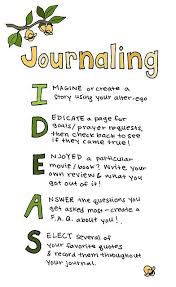 Journaling
IMAGINE or create a
story using your alter-ego
DEDICATE a page for
goals/prayer requests,
then check back to see
if they came true!
ENJOYED a particular
movie/book? Write your
own review & what you
got out of it!
ANSWER the questions you
get asked most-create a
F.A.Q. about you!
SELECT several of
your favorite quotes
& record them throughout
your journal.